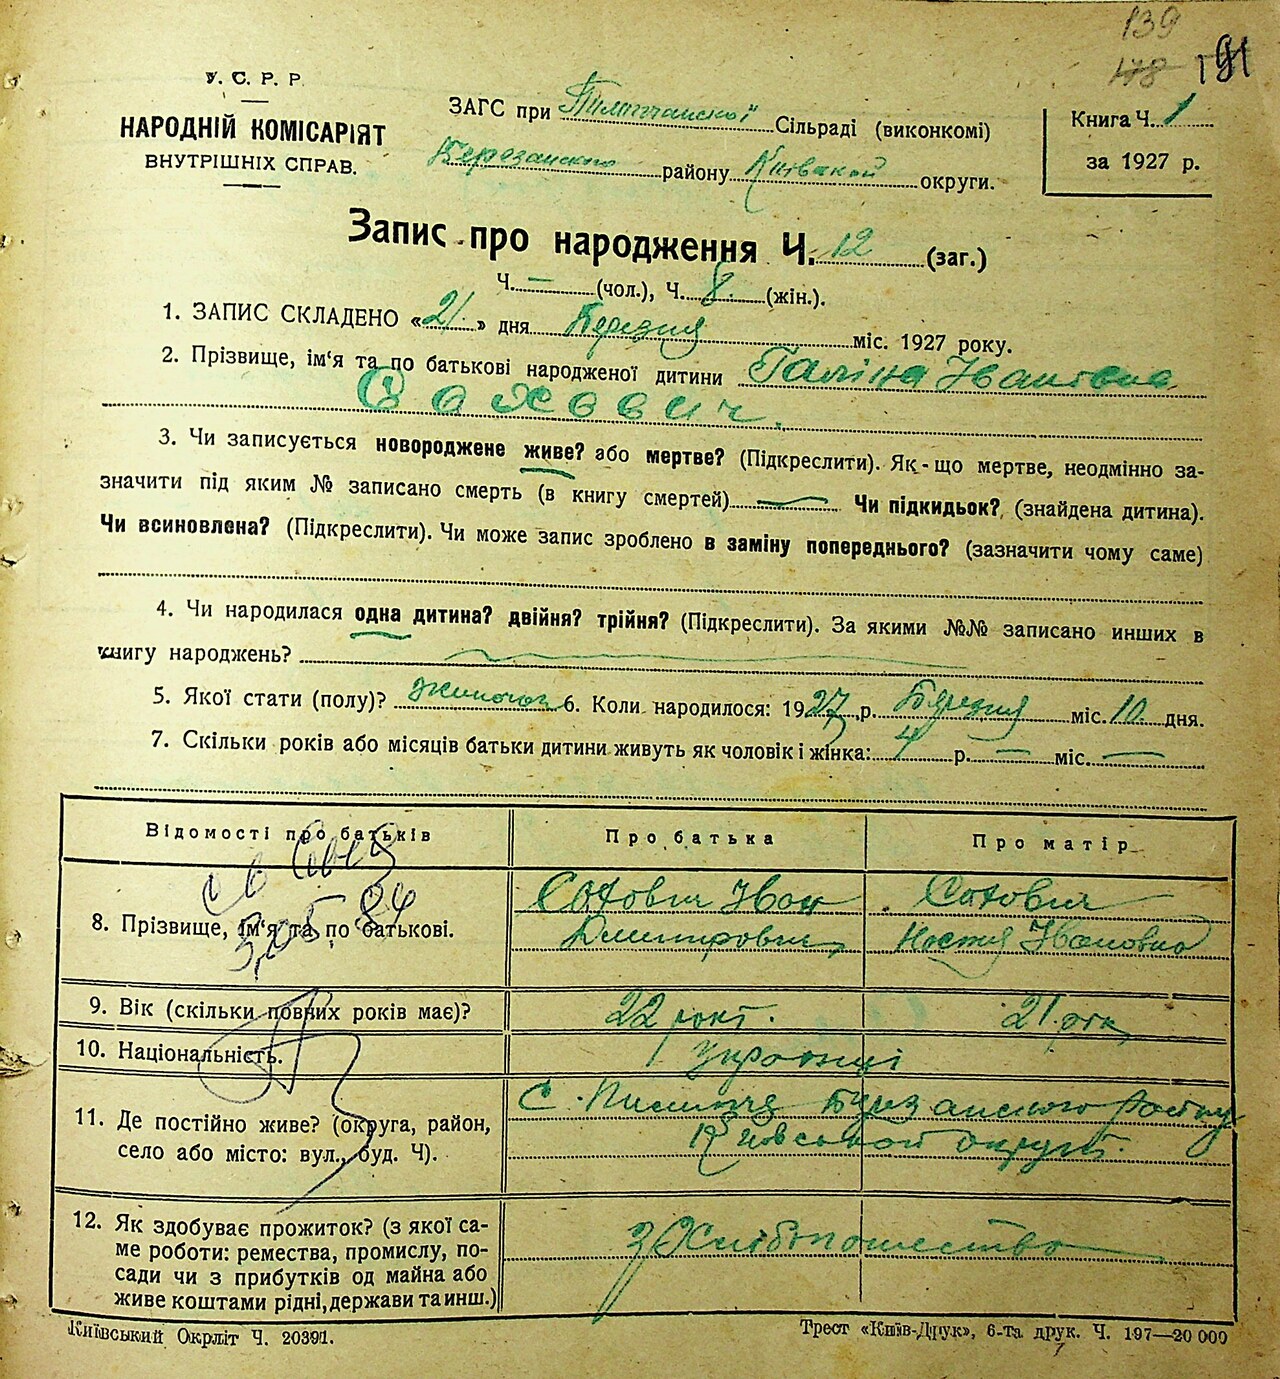 139
178 191
У. С. Р. Р.
НАРОДНІЙ КОМІСАРІЯТ
ВНУТРІШНІХ СПРАВ.
ЗАГС при Сільраді (виконкомі)
Березанського району Київської округи.
Книга Ч. 1
за 1927 р.
Запис про народження Ч. 12 (заг.)
Ч. — (чол.), Ч. 8. (жін.).
1. ЗАПИС СКЛАДЕНО «21» дня Березня міс. 1927 року.
2. Прізвище, ім'я та по батькові народженої дитини Галіна Івановна
Сахович.
3. Чи записується новороджене живе? або мертве? (Підкреслити). Як-що мертве, неодмінно за-
значити під яким № записано смерть (в книгу смертей) — Чи підкидьок? (знайдена дитина).
Чи всиновлена? (Підкреслити). Чи може запис зроблено в заміну попереднього? (зазначити чому саме)
4. Чи народилася одна дитина? двійня? трійня? (Підкреслити). За якими №№ записано инших в
книгу народжень?
5. Якої стати (полу)? жиночої 6. Коли народилося: 1927 р. Березня міс. 10 дня.
7. Скільки років або місяців батьки дитини живуть як чоловік і жінка: 4 р. — міс. —
Відомості про батьків Про батька Про матір
8. Прізвище, ім'я та по батькові. Сахович Іван Сахович
Дмитрович Настя Івановна
9. Вік (скільки повних років має)? 22 рокі. 21 рік
10. Національність. Українці
11. Де постійно живе? (округа, район, С. Березанського району
село або місто: вул., буд. Ч). Київської округи.
12. Як здобуває прожиток? (з якої са-
ме роботи: ремества, промислу, по- з Хлібопашества
сади чи з прибутків од майна або
живе коштами рідні, держави та инш.)
Київський Окрліт Ч. 20391. Трест «Київ-Друк», 6-та друк. Ч. 197—20 000